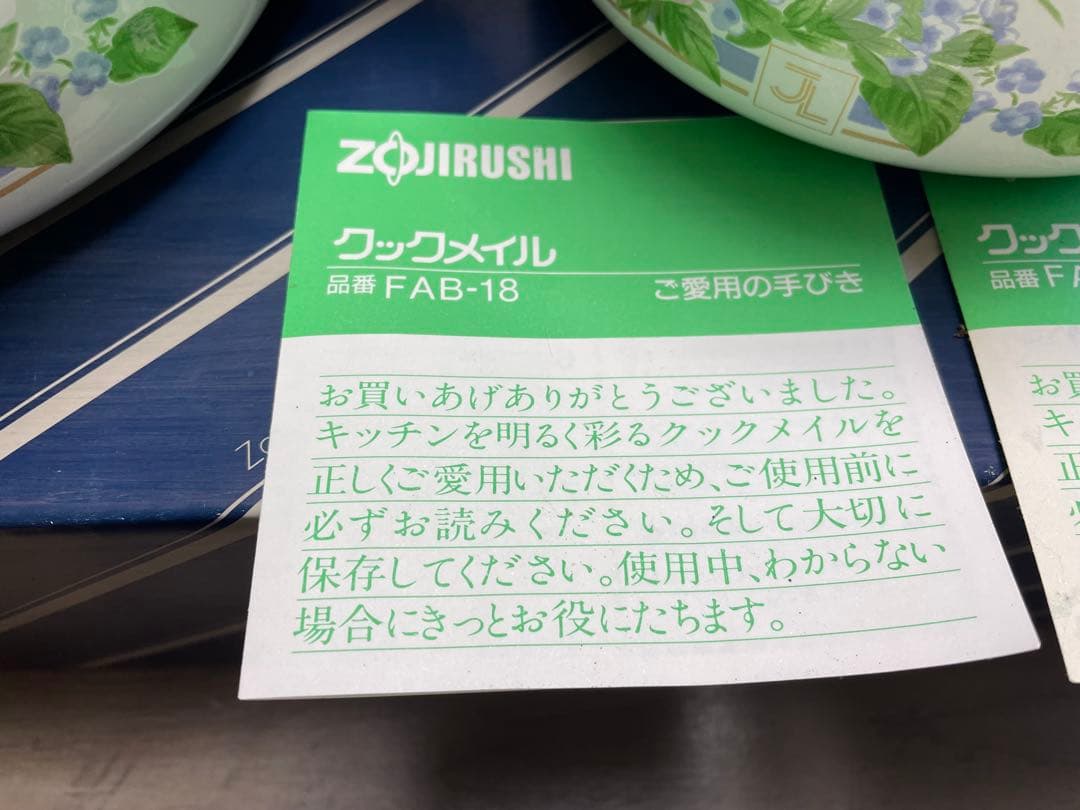 JL
ZOJIRUSHI
クックメイル
品番 FAB-18 ご愛用の手びき
お買いあげありがとうございました。
キッチンを明るく彩るクックメイルを
正しくご愛用いただくため、ご使用前に
必ずお読みください。そして大切に
保存してください。使用中、わからない
場合にきっとお役にたちます。
クック
品番 FA
お買
キ
正
必
ZO